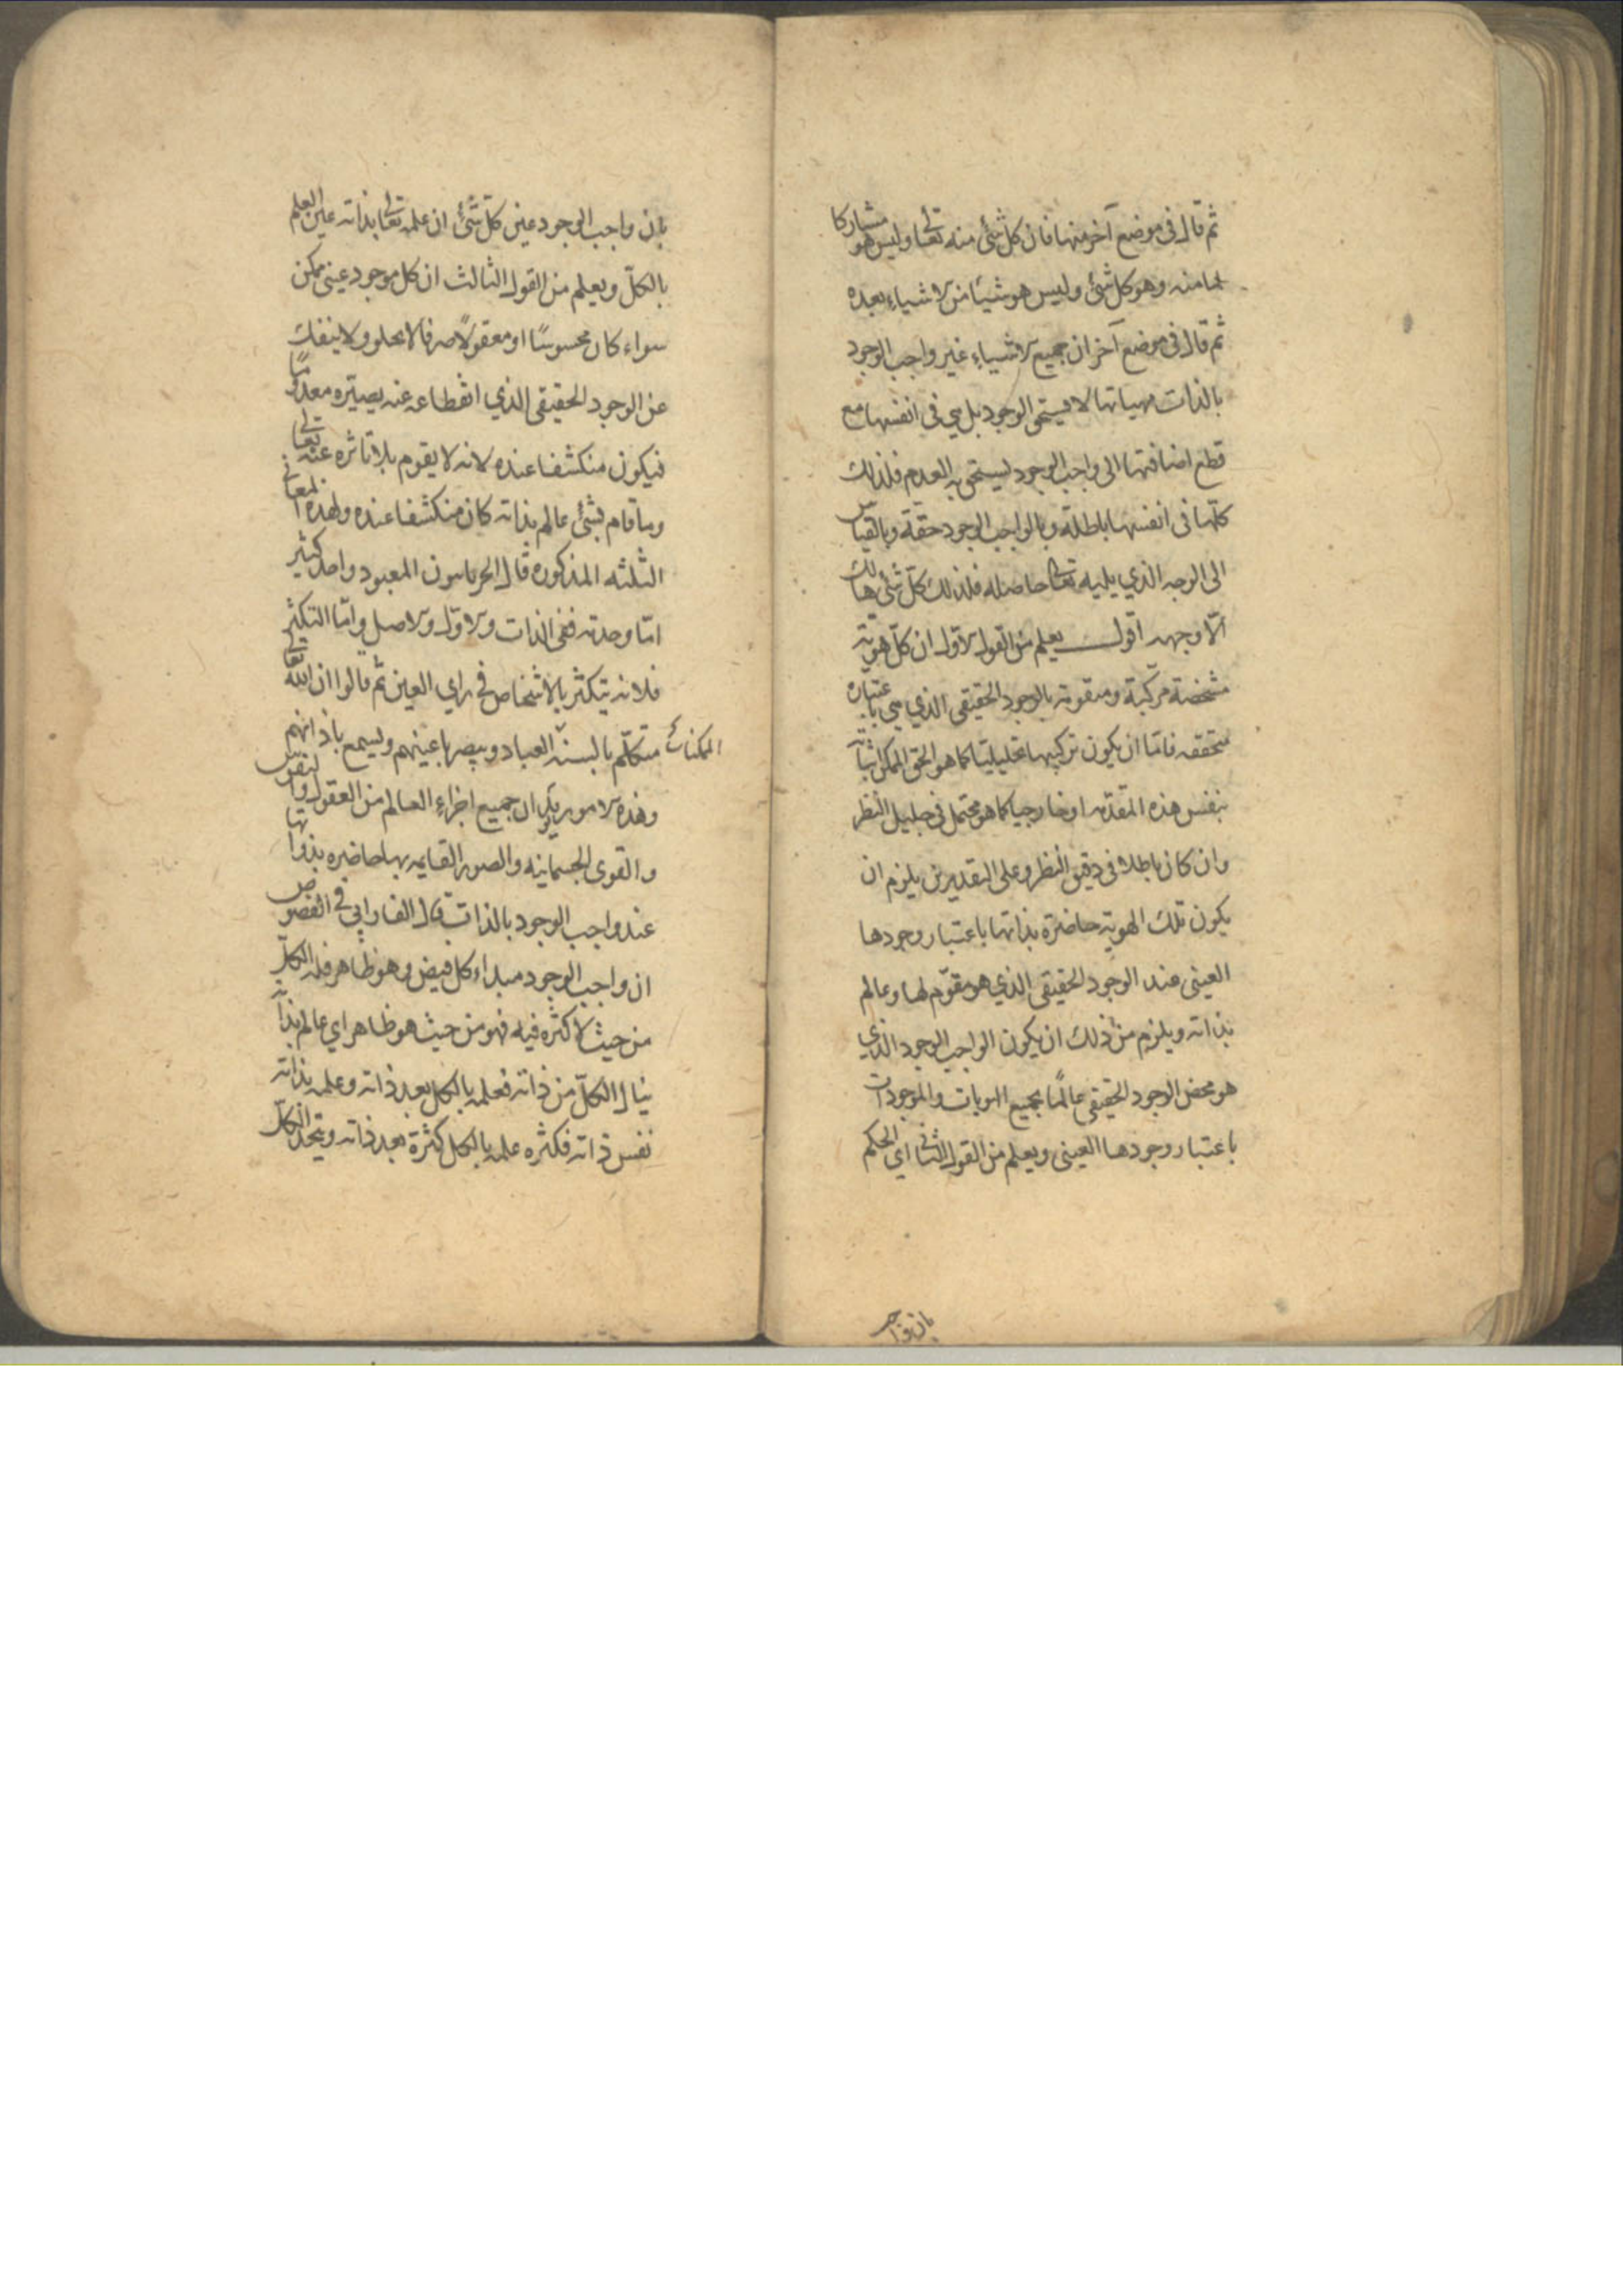 ثم قال فى موضع آخر منها فان كل شئ منه تعالى وليس هو مشاركا
لما منه وهو كل شئ وليس هو شيئا من الاشياء بعده
ثم قال فى موضع آخر ان جميع الاشياء غير واجب الوجود
بالذات مهياتها لا يستحق الوجود بل هي فى انفسها مع
قطع اضافتها الى واجب الوجود يستحق به العدم فلذلك
كلّها فى انفسها باطلة وبالواجب الوجود حقة وبالقياس
الى الوجه الذي يليه تعالى حاصله فلذلك كلّ شئ هالك
الّا وجهه اقول يعلم من القول الاوّل ان كلّ هوية
مشخصة مركبة ومتقومة بالوجود الحقيقى الذي هي باعتباره
متحققه فامّا ان يكون تركيبها تحليليّا كما هو الحق الممكن اثباته
بنفس هذه المقدّمه او خارجيا كما هو محتمل فى جليل النظر
وان كان باطلا فى دقيق النظر وعلى التقديرين يلزم ان
يكون تلك الهوية حاضرة بذاتها باعتبار وجودها
العينى عند الوجود الحقيقى الذي هو مقوّم لها وعالم
بذاته ويلزم من ذلك ان يكون الواجب الوجود الذي
هو محض الوجود الحقيقي عالمًا بجميع الهويات والموجودات
باعتبار وجودها العينى ويعلم من القول الثانى اي الحكم
بان واجب
بان واجب الوجود عين كلّ شئ ان علمه تعالى بذاته عين العلم
بالكلّ ويعلم من القول الثالث ان كل موجود عينى ممكن
سواء كان محسوسًا او معقولًا صرفا لا يخلو ولا ينفك
عن الوجود الحقيقى الذي انقطاعه عنه يصيّره معدومًا
فيكون منكشفا عنده لانه لا يقوم بلا تأثره عنه تعالى
وما قام بشئ عالم بذاته كان منكشفا عنده ولهذه المعانى
الثلثه المذكوره قال الحرنانيون المعبود واحد كثير
امّا وحدته ففى الذات والاوّل والاصل وامّا التكثر
فلانه يتكثر بالاشخاص فى راي العين ثم قالوا ان الله تعالى
متكلّم بالسنة العباد ويبصر باعينهم ويسمع باذانهم
الممكنات
وهذه الامور يقول ان جميع اجزاء العالم من العقول والنفوس
والقوى الجسمانيه والصور القايمه بها حاضره بذواتها
عند واجب الوجود بالذات قال الفارابي فى الفصوص
ان واجب الوجود مبداء كل فيض وهو ظاهر فله الكلّ
من حيث لا كثره فيه فهو من حيث هو ظاهر اي عالم بذاته
ينال الكلّ من ذاته فعلمه بالكل بعد ذاته وعلمه بذاته
نفس ذاته فكثره علمه بالكل كثرة بعد ذاته ويتحد الكلّ